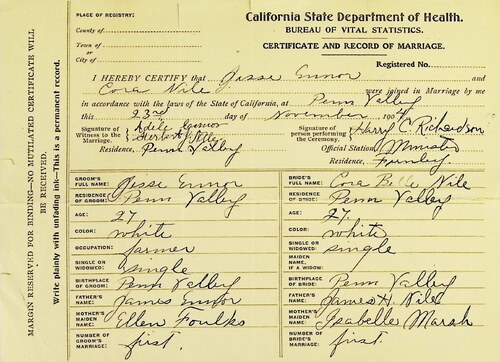 PLACE OF REGISTRY:
County of
Town of
or
City of
California State Department of Health.
BUREAU OF VITAL STATISTICS.
CERTIFICATE AND RECORD OF MARRIAGE.
Registered No.
I HEREBY CERTIFY that Jesse Ennor and
Cora Nile were joined in Marriage by me
in accordance with the laws of the State of California, at Penn Valley
this 23rd day of November 190
Signature of Witness to the Marriage Adele
& Herbert Nile
Residence, Penn Valley
Signature of person performing the Ceremony, Harry C. Richardson
Official Station, Minister
Residence,
MARGIN RESERVED FOR BINDING—NO MUTILATED CERTIFICATE WILL BE RECEIVED.
Write plainly with unfading ink—This is a permanent record.
GROOM'S FULL NAME: Jesse Ennor
RESIDENCE OF GROOM: Penn Valley
AGE: 27
COLOR: white
OCCUPATION: farmer
SINGLE OR WIDOWED: single
BIRTHPLACE OF GROOM: Penn Valley
FATHER'S NAME: James Ennor
MOTHER'S MAIDEN NAME: Ellen Foulks
NUMBER OF GROOM'S MARRIAGE: first.
BRIDE'S FULL NAME: Cora Belle Nile
RESIDENCE OF BRIDE: Penn Valley
AGE: 27.
COLOR: white
SINGLE OR WIDOWED: single
MAIDEN NAME, IF A WIDOW:
BIRTHPLACE OF BRIDE: Penn Valley
FATHER'S NAME: James H. Nile
MOTHER'S MAIDEN NAME: Isabelle Marsh
NUMBER OF BRIDE'S MARRIAGE: first.